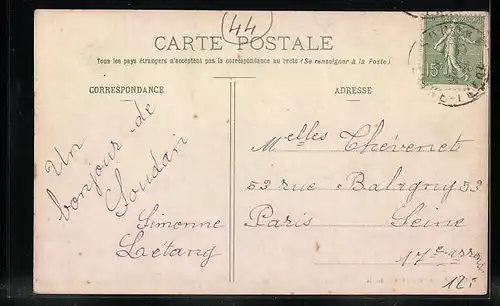 (44)
CARTE POSTALE
Tous les pays étrangers n'acceptent pas la correspondance au recto (Se renseigner à la Poste)
CORRESPONDANCE
ADRESSE
Un
bonjour de
Soudan
Simonne
Laëtang
Melles Thévenet
53 rue Balagny 53
Paris Seine
17e arrond.
12
15c